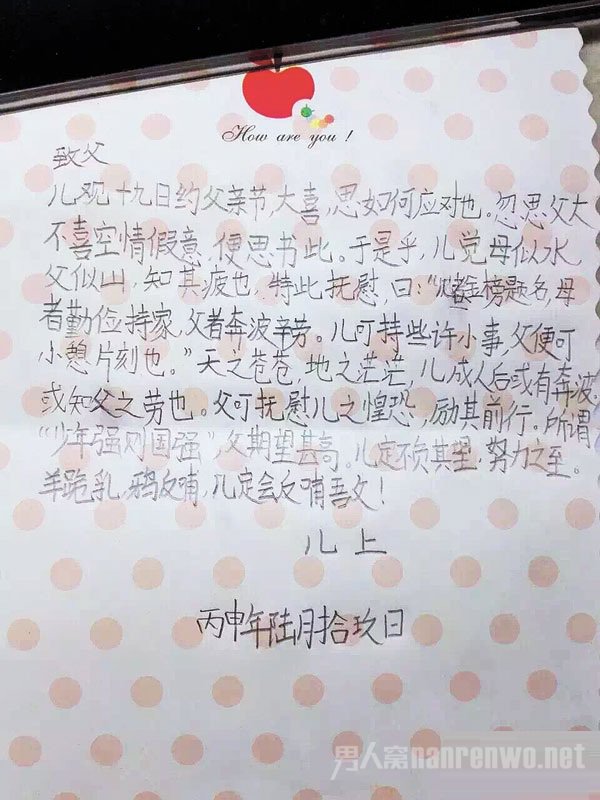 How are you !
致父
儿观十九日约父亲节，大喜，思如何应对也。忽思父大
不喜空情假意，便思书此。于是乎，儿觉母似水，
父似山，知其疲也，特此抚慰，曰：“金榜题名，母
者勤俭持家，父者奔波辛劳。儿可持些许小事，父便可
小憩片刻也。”天之苍苍，地之茫茫，儿成人后或有奔波，
或知父之劳也。父可抚慰儿之惶恐，励其前行。所谓
“少年强则国强”，父期望甚高。儿定不负其望，努力之至。
羊跪乳，鸦反哺，儿定会反哺吾父！
儿上
丙申年陆月拾玖日
男人窝nanrenwo.net